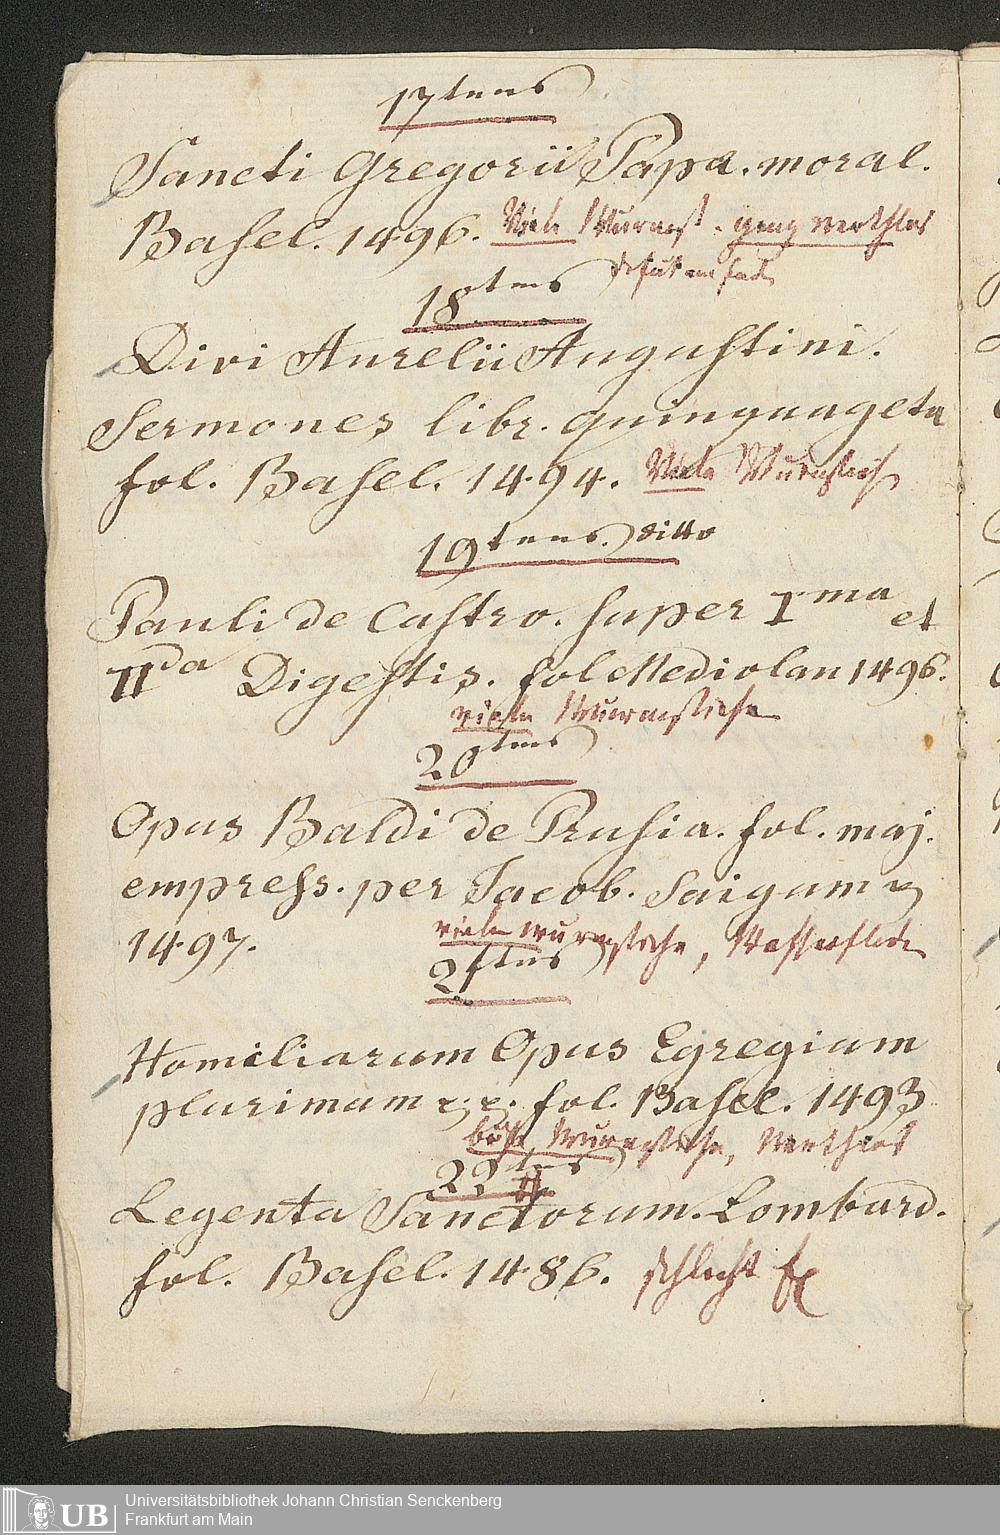 17tens
Sancti Gregorii Papa. moral.
Basel. 1496. Viele Wurmst. ganz werthlos
defect am Ende
18tens
Divi Aurelii Augustini.
Sermones libr. quinquageta
fol. Basel. 1494. Viele Wurmstich
19tens. ditto
Pauli de Castro. super Ima et
IIda Digestis. fol Mediolan 1496.
viele Wurmstiche
20tens
Opus Baldi de Prusia. fol. maj.
empress. per Jacob. Saigum
1497. viele wurmstiche, Wasserflecke
21tens
Homiliarum Opus Egregium
plurimum fol. Basel. 1493
Wurmstiche, Werthlos
22tens
Legenta Sanctorum. Lombard.
fol. Basel. 1486. schlecht
Universitätsbibliothek Johann Christian Senckenberg
Frankfurt am Main
UB